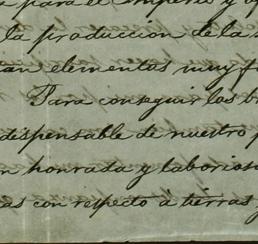 para el Imperio y
la produccion de la
an elementos muy f
Para conseguir los b
dispensable de nuestro p
n honrada y laborios
as con respecto á tierras